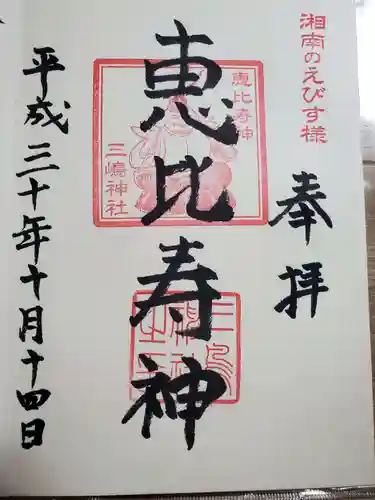 湘南のえびす様
奉拝
恵比寿神
三嶋神社
恵比寿神
平成三十年十月十四日